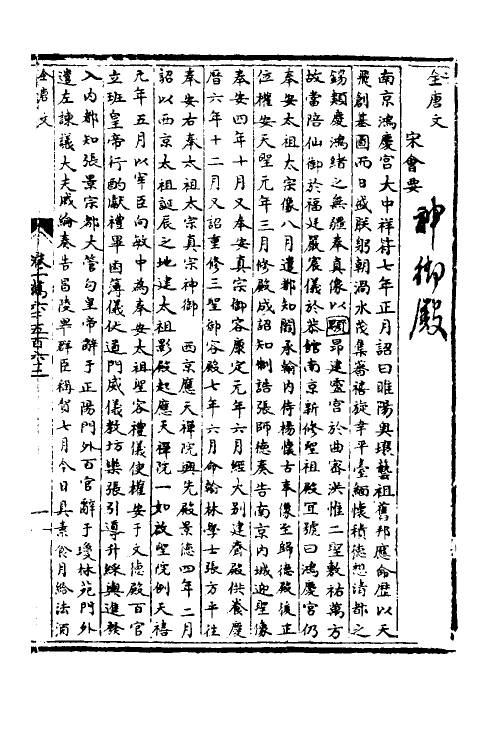 全唐文
宋會要
神御殿
南京鴻慶宮大中祥符七年正月詔曰睢陽奧壤藝祖舊邦應命歷以天
飛創基圖而日盛朕躬朝渦水茂集蕃禧旋幸平臺緬懷積德想清都之
錫類慶鴻緒之無疆奉真像以顯昂建靈宮於曲密洪惟二聖敷祐萬方
故當陪仙御於福廷嚴扆儀於恭館南京新修聖祖殿宜號曰鴻慶宮仍
奉安太祖太宗像八月遣都知閻承翰內侍楊懷古奉像至歸德殿後正
位權安天聖元年三月修殿成詔知制誥張師德奏告南京內城迎聖像
奉安四年十月又奉安真宗御容康定元年六月經大別建齋殿供養慶
曆六年十二月又詔重修三聖御容殿七年六月命翰林學士張方平往
奉安右奉太祖太宗真宗神御 西京應天禪院興先殿景德四年二月
詔以西京太祖誕辰之地建太祖影殿起應天禪院一如啟聖院例天禧
元年五月以宰臣向敏中為奉安太祖聖容禮儀使權安于文德殿百官
立班皇帝行酌獻禮畢鹵簿儀仗道門威儀教坊樂張引導升綵輿進發
入內都知張景宗都大管勾皇帝辭于正陽門外百官辭于瓊林苑門外
遣左諫議大夫戚綸奏告昌陵畢群臣稱賀七月今日具素食月給法酒
全唐文
卷一萬六千五百六十三
一